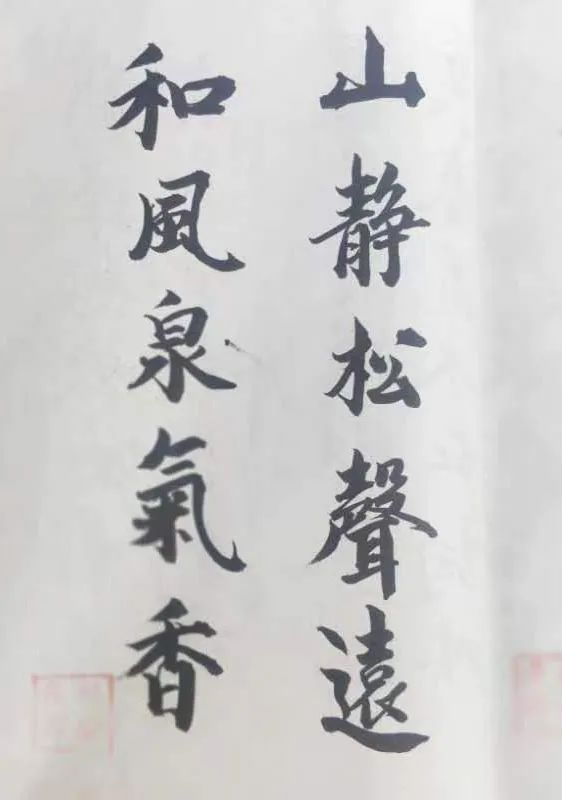 山静松聲遠
和風泉氣香